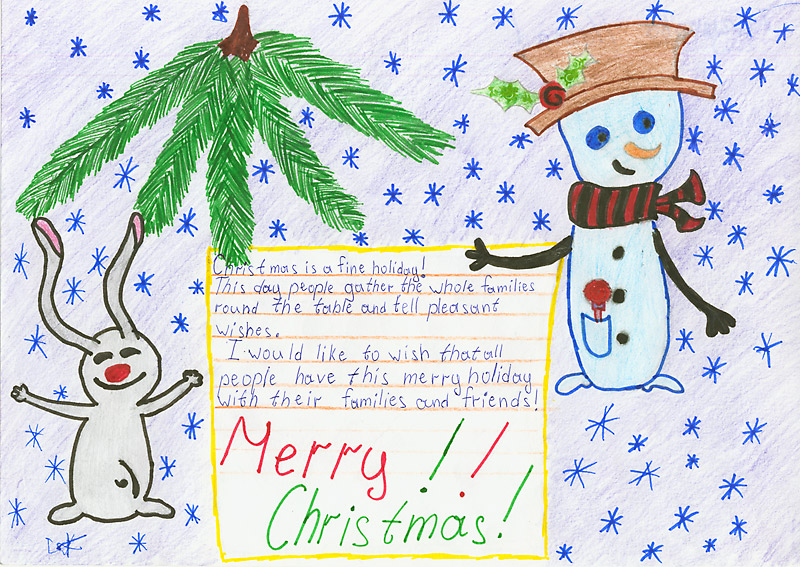 Christmas is a fine holiday!
This day people gather the whole families
round the table and tell pleasant
wishes.
I would like to wish that all
people have this merry holiday
with their families and friends!
Merry !!
Christmas!